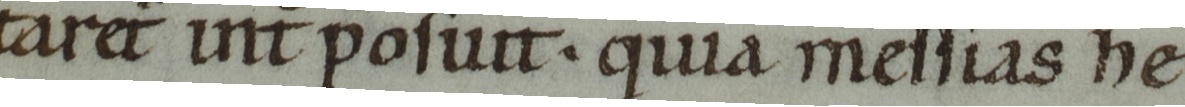 taret int posuit. quia messias he